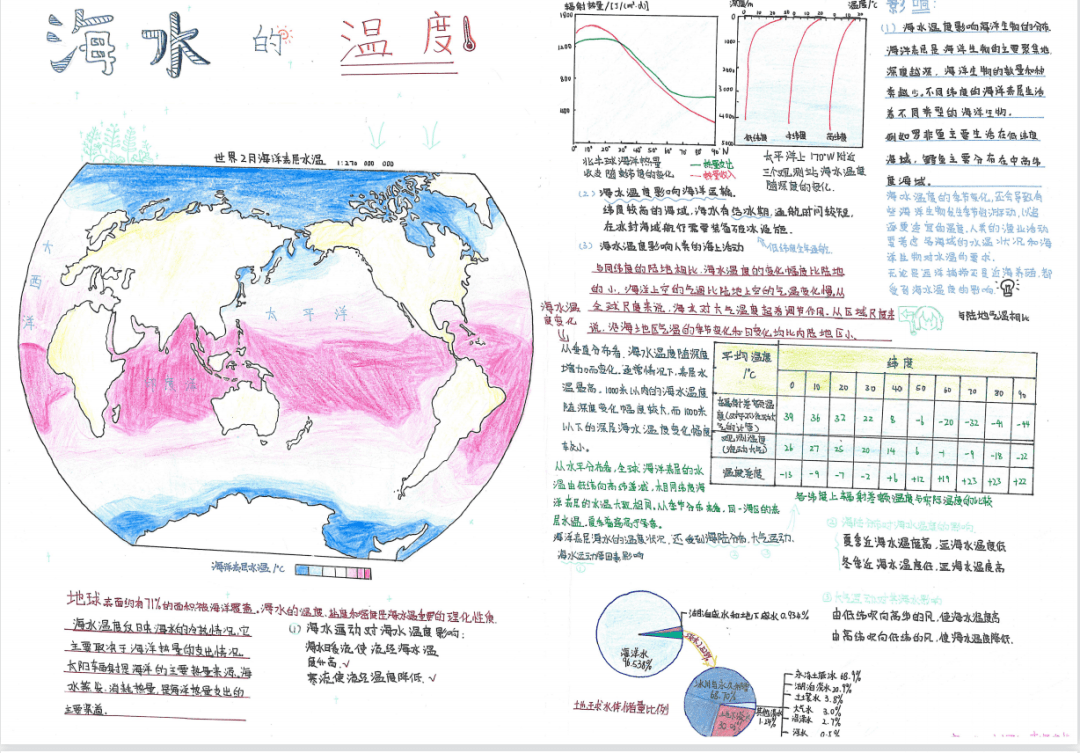 海水的温度
世界2月海洋表层水温 1:270 000 000
大
西
洋
太平洋
印度洋
海洋表层水温/°C
地球表面约有71%的面积被海洋覆盖。海水的温度、盐度和密度是海水温重要的理化性质
海水温度反映海水的冷热情况,它
主要取决于海洋热量的支出情况。
太阳辐射是海洋的主要热量来源。海
水蒸发,消耗热量,是海洋热量支出的
主要渠道。
(1) 海水运动对海水温度影响:
海水暖流使流经海水温
度升高.√
寒流使流经温度降低.√
辐射热量/[J/(m²·d)]
1500
800
400
0° 10° 20° 30° 40° 50° 60° 70° 80° 90°N
北半球海洋热量
收支随纬度的变化
热量支出
热量收入
深度/m
温度/°C
0 10 20
0
1000
2000
3000
4000
低纬度
中纬度
高纬度
太平洋上170°W附近
三个观测站海水温度
随深度的变化.
(2) 海水温度影响海洋运输.
纬度较高的海域,海水有结冰期,通航时间较短,
在冰封海域航行需要装备破冰设施.
(3) 海水温度影响人类的海上活动
低纬度全年通航.
影响:
(1) 海水温度影响海洋生物的分布
海洋表层是海洋生物的主要聚集地
深度越深,海洋生物的数量和种
类越少,不同纬度的海洋表层生活
着不同类型的海洋生物.
例如罗非鱼主要生活在低纬度
海域,鳕鱼主要分布在中高纬
度海域.
海水温度的季节变化,还会导致有
些海洋生物发生季节的游动,以追
逐更适宜的温度,人类的渔业活动
要考虑各海域的水温状况和海
洋生物对水温的要求.
无论是远洋捕捞不是近海养殖,都
受到海水温度的影响.
与同纬度的陆地相比,海水温度的变化幅度比陆地
的小,海洋上空的气温比陆地上空的气温变化慢.从
全球尺度来说,海水对大气温度起着调节作用.从区域尺度来
说,沿海土地区气温的季节变化和日变化均比内陆地区小.
与陆地气温相比
海水温
度变化
从垂直分布看,海水温度随深度
增加而变化,通常情况下,表层水
温最高,1000米以内的海水温度
随深度变化幅度较大,而1000米
以下的深层海水温度变化幅度
较小.
从水平分布看,全球海洋表层的水
温由低纬向高纬递减,相同纬度海
洋表层的水温大致相同,从季节分布来看,同一海区的表
层水温,夏季普遍高于冬季.
海洋表层海水的温度状况,还受到海陆分布,大气运动,
海水运动等因素影响
平均温度/°C 纬度
0 10 20 30 40 50 60 70 80 90
辐射差额温度(对于不流动大气的计算) 39 36 32 22 8 -6 -20 -32 -41 -44
观测温度(流动大气) 26 27 25 20 14 6 -1 -9 -18 -22
温度差度 -13 -9 -7 -2 +6 +12 +19 +23 +23 +22
各纬度上辐射差额温度与实际温度的比较
② 海陆分布对海水温度的影响
夏季近海水温度高,远海水温度低
冬季近海水温度低,远海水温度高
③ 大气运动对海水影响
由低纬吹向高纬的风,使海水温度高
由高纬吹向低纬的风,使海水温度降低.
海洋水
96.538%
湖泊咸水和地下咸水 0.936%
冰川与永久积雪
68.70%
地球水体储量比例
永冻土底冰 68.9%
湖泊淡水 20.9%
土壤水 3.8%
大气水 3.0%
沼泽水 2.7%